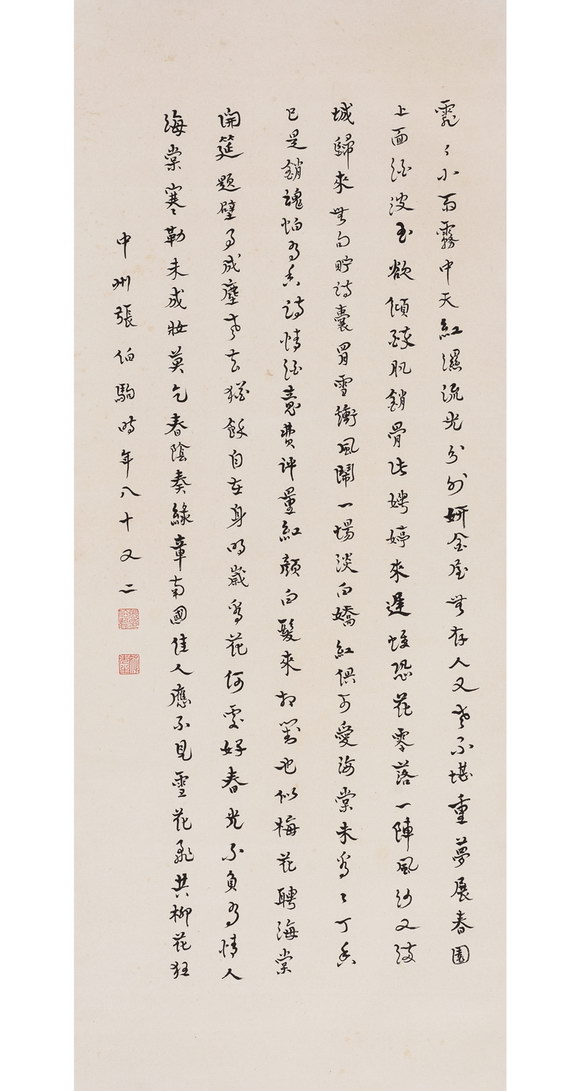 霏〻小雨霧中天紅濕流光分外妍金屋無存人又老不堪重夢展春園
上面酒波玉欲傾肌銷骨比娉婷來遲恐花零落一陣風沙又滿
城歸來無句貯詩囊冒雪衝風鬧一場淡白嬌紅俱可愛海棠未看〻丁香
已是銷魂怕香詩情酒意費評量紅顏白髮來相對也似梅花聘海棠
開筵題壁事成塵老去猶餘自在身明歲看花何處好春光不負情人
海棠寒勒未成妝莫乞春陰奏綠章南國佳人應不見雪花飛共柳花狂
中州張伯駒時年八十又二